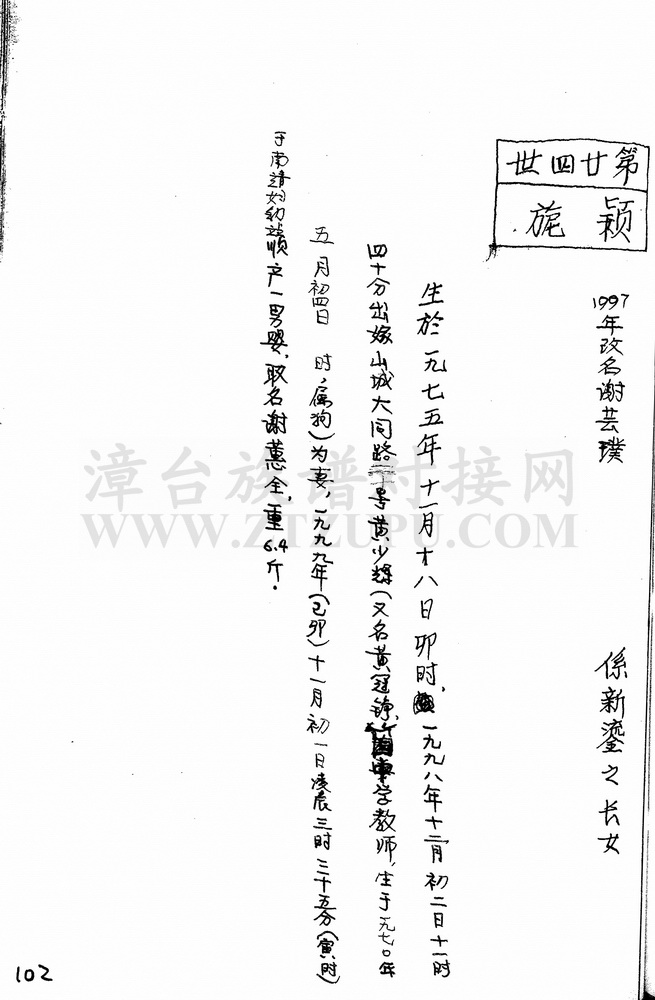 第廿四世
颖旎
1997年改名谢芸璞
係新鎏之长女
生於一九七五年十一月十八日卯时，一九九八年十二月初二日十一时
四十分出嫁山城大同路二十号黄少辉（又名黄冠铮，中学教师，生于一九七〇年
五月初四日 时，属狗）为妻，一九九九年（己卯）十一月初一日凌晨三时三十五分（寅时）
于南靖妇幼站顺产一男婴，取名谢蕙全，重6.4斤．
102
漳台族谱对接网
WWW.ZTZUPU.COM